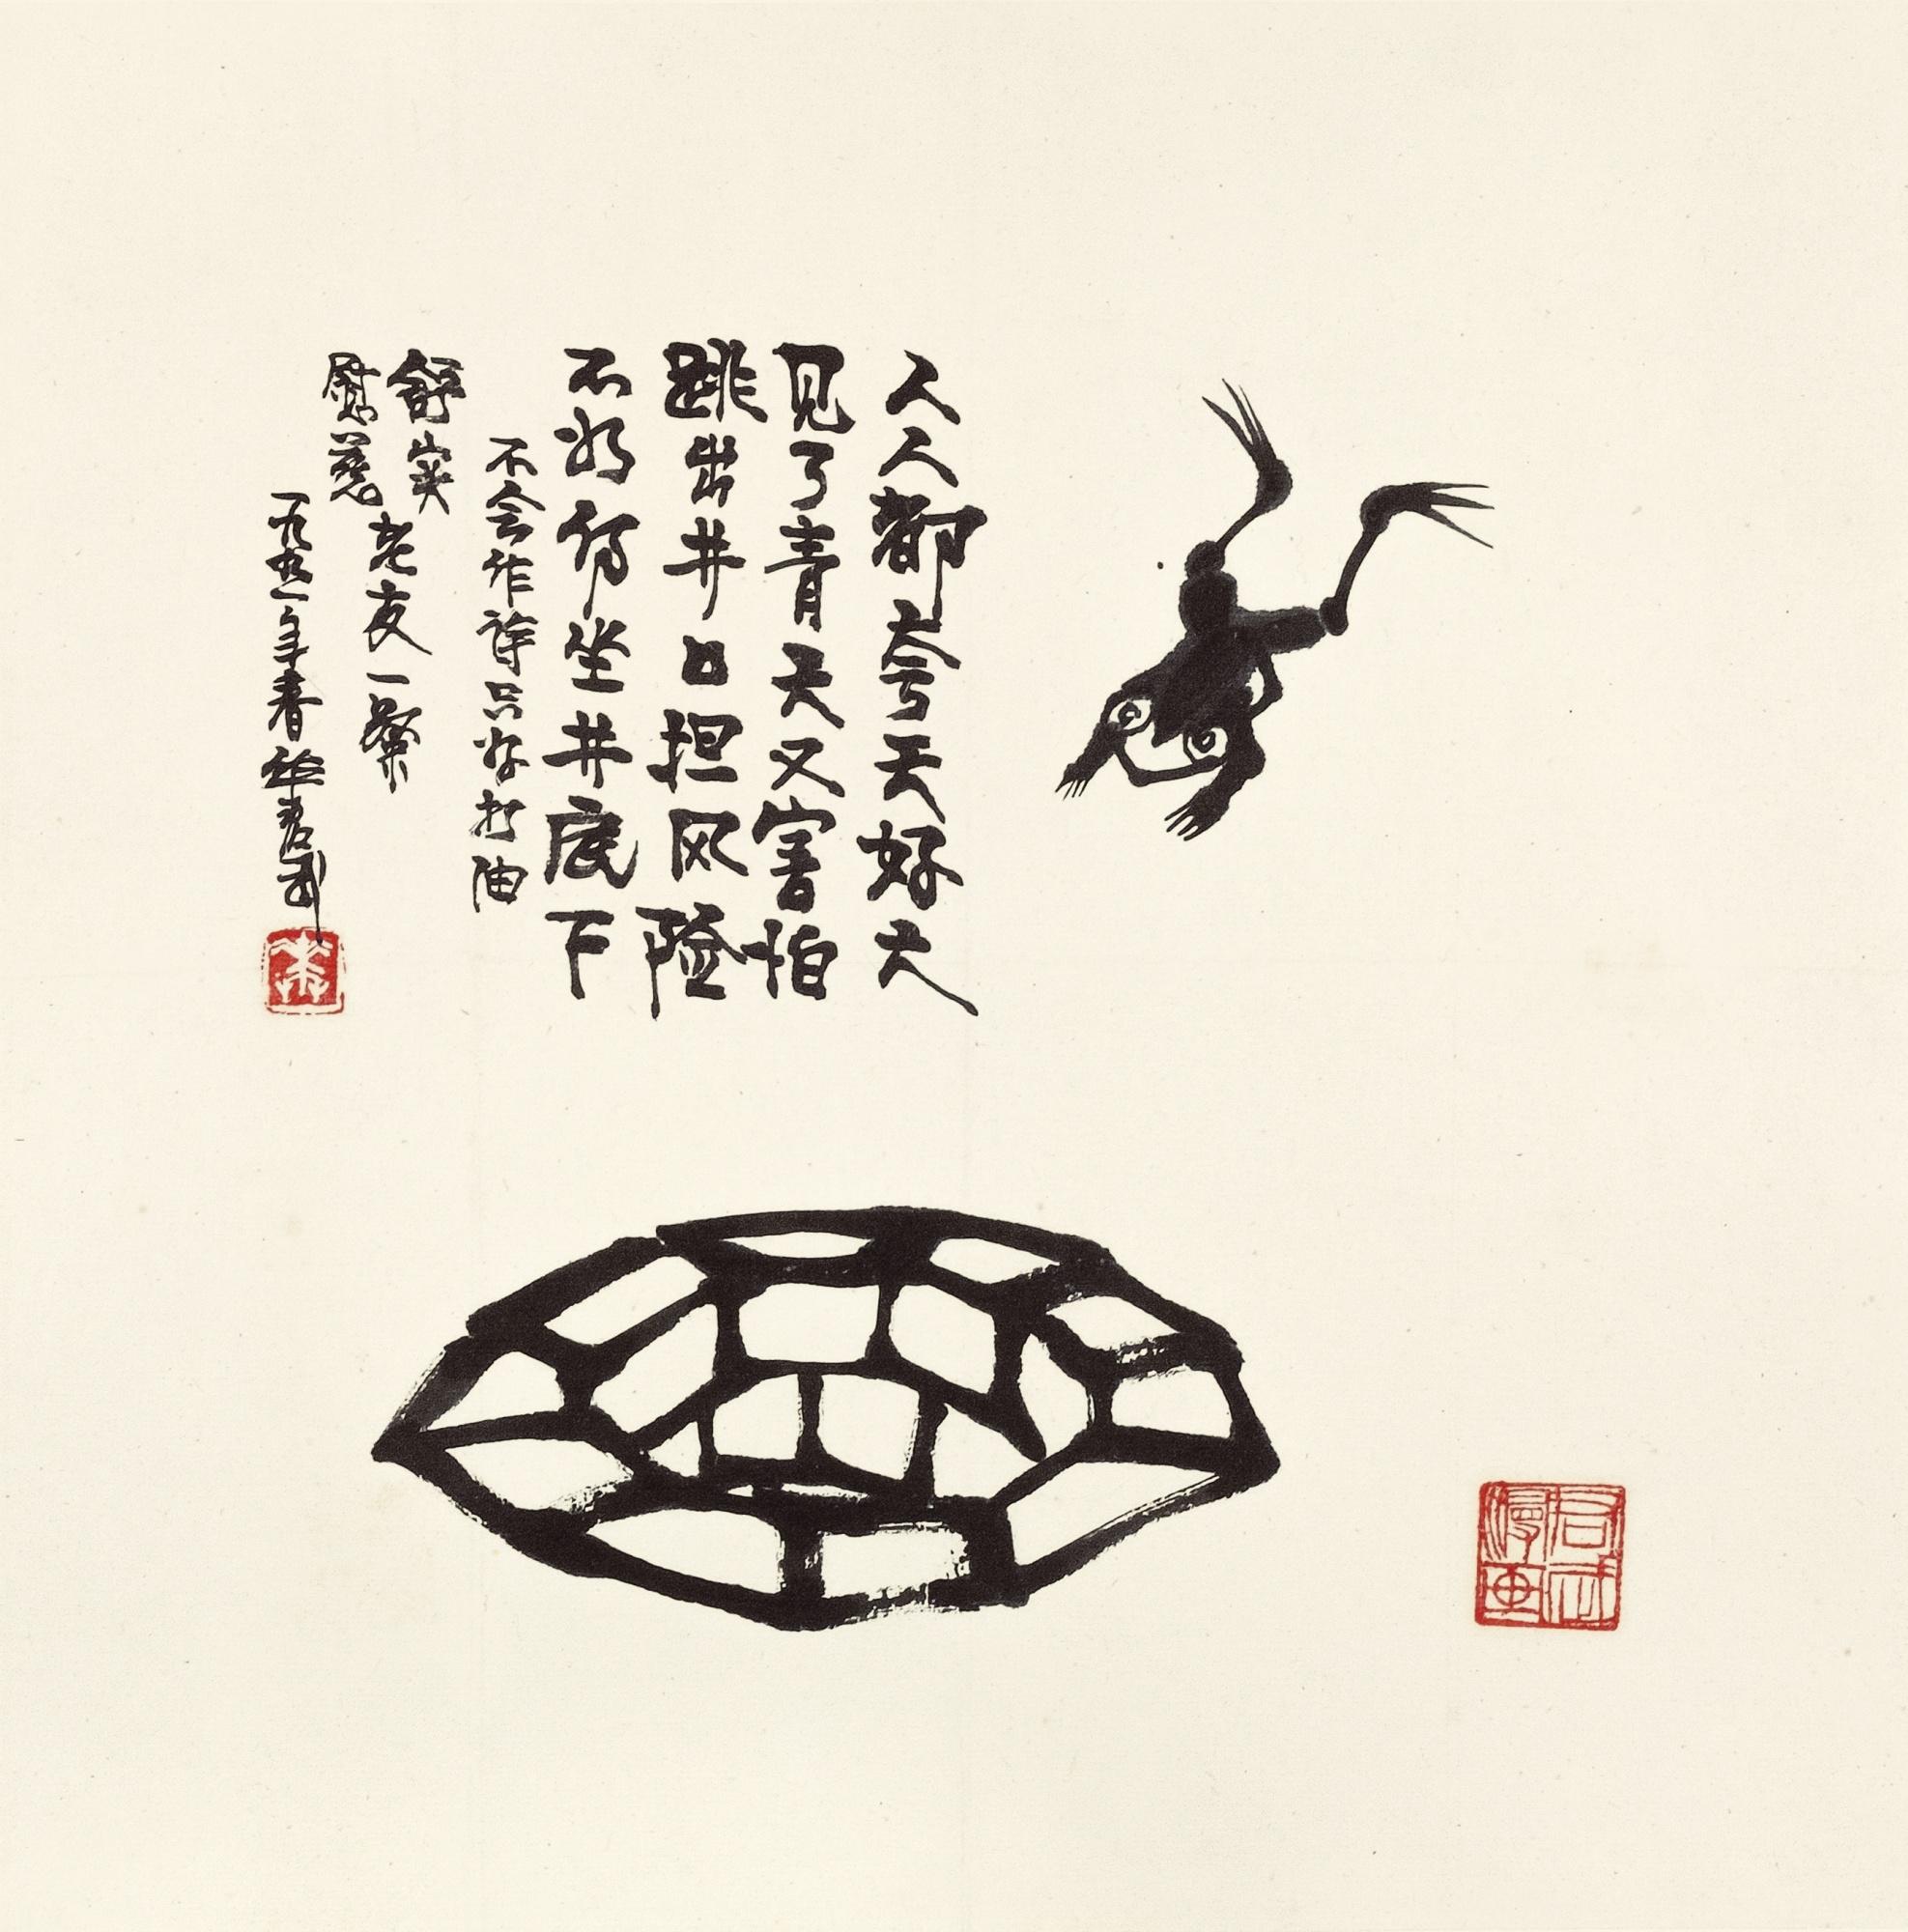 人人都夸天好大
见了青天又害怕
跳出井口担风险
不如仍坐井底下
不会作诗只好打油
舒实
慰慈
老友一粲
一九九一年春华君武
华
君武漫画